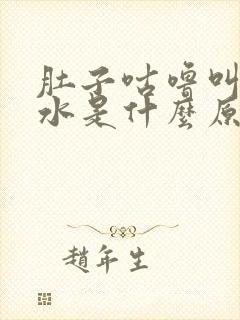 肚子咕噜叫
水是什麼原
趙年生